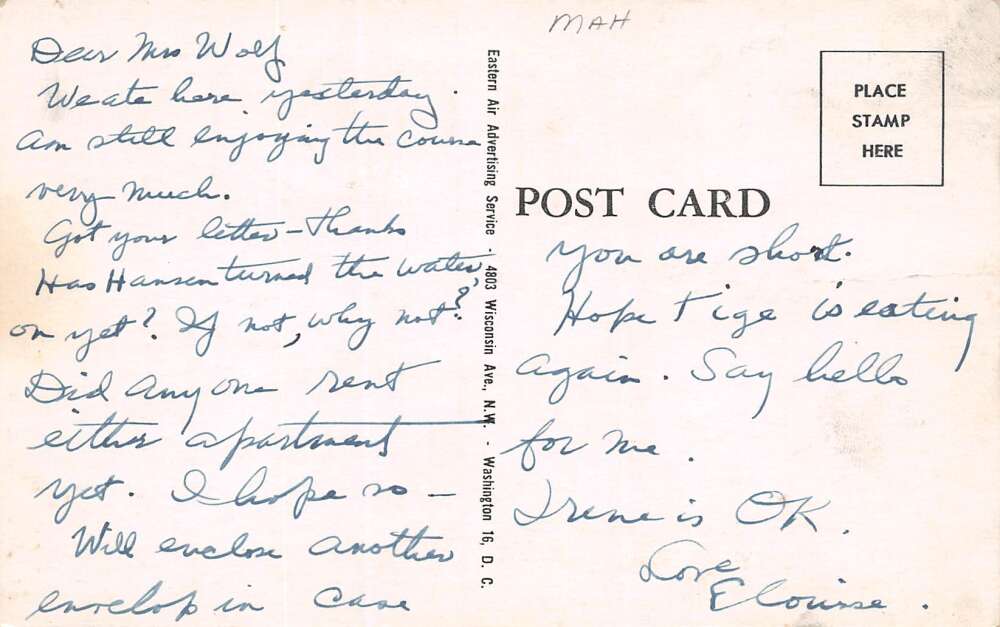 MAH
Dear Mrs Wolf
We ate here yesterday.
Am still enjoying the course
very much.
Got your letter – Thanks
Has Hansen turned the water
on yet? If not, why not?
Did anyone rent
either apartment
yet. I hope so –
Will enclose another
envelop in case
Eastern Air Advertising Service - 4803 Wisconsin Ave., N.W. - Washington 16, D. C.
PLACE
STAMP
HERE
POST CARD
you are short.
Hope Tige is eating
again. Say hello
for me.
Irene is OK.
Love
Elouise.